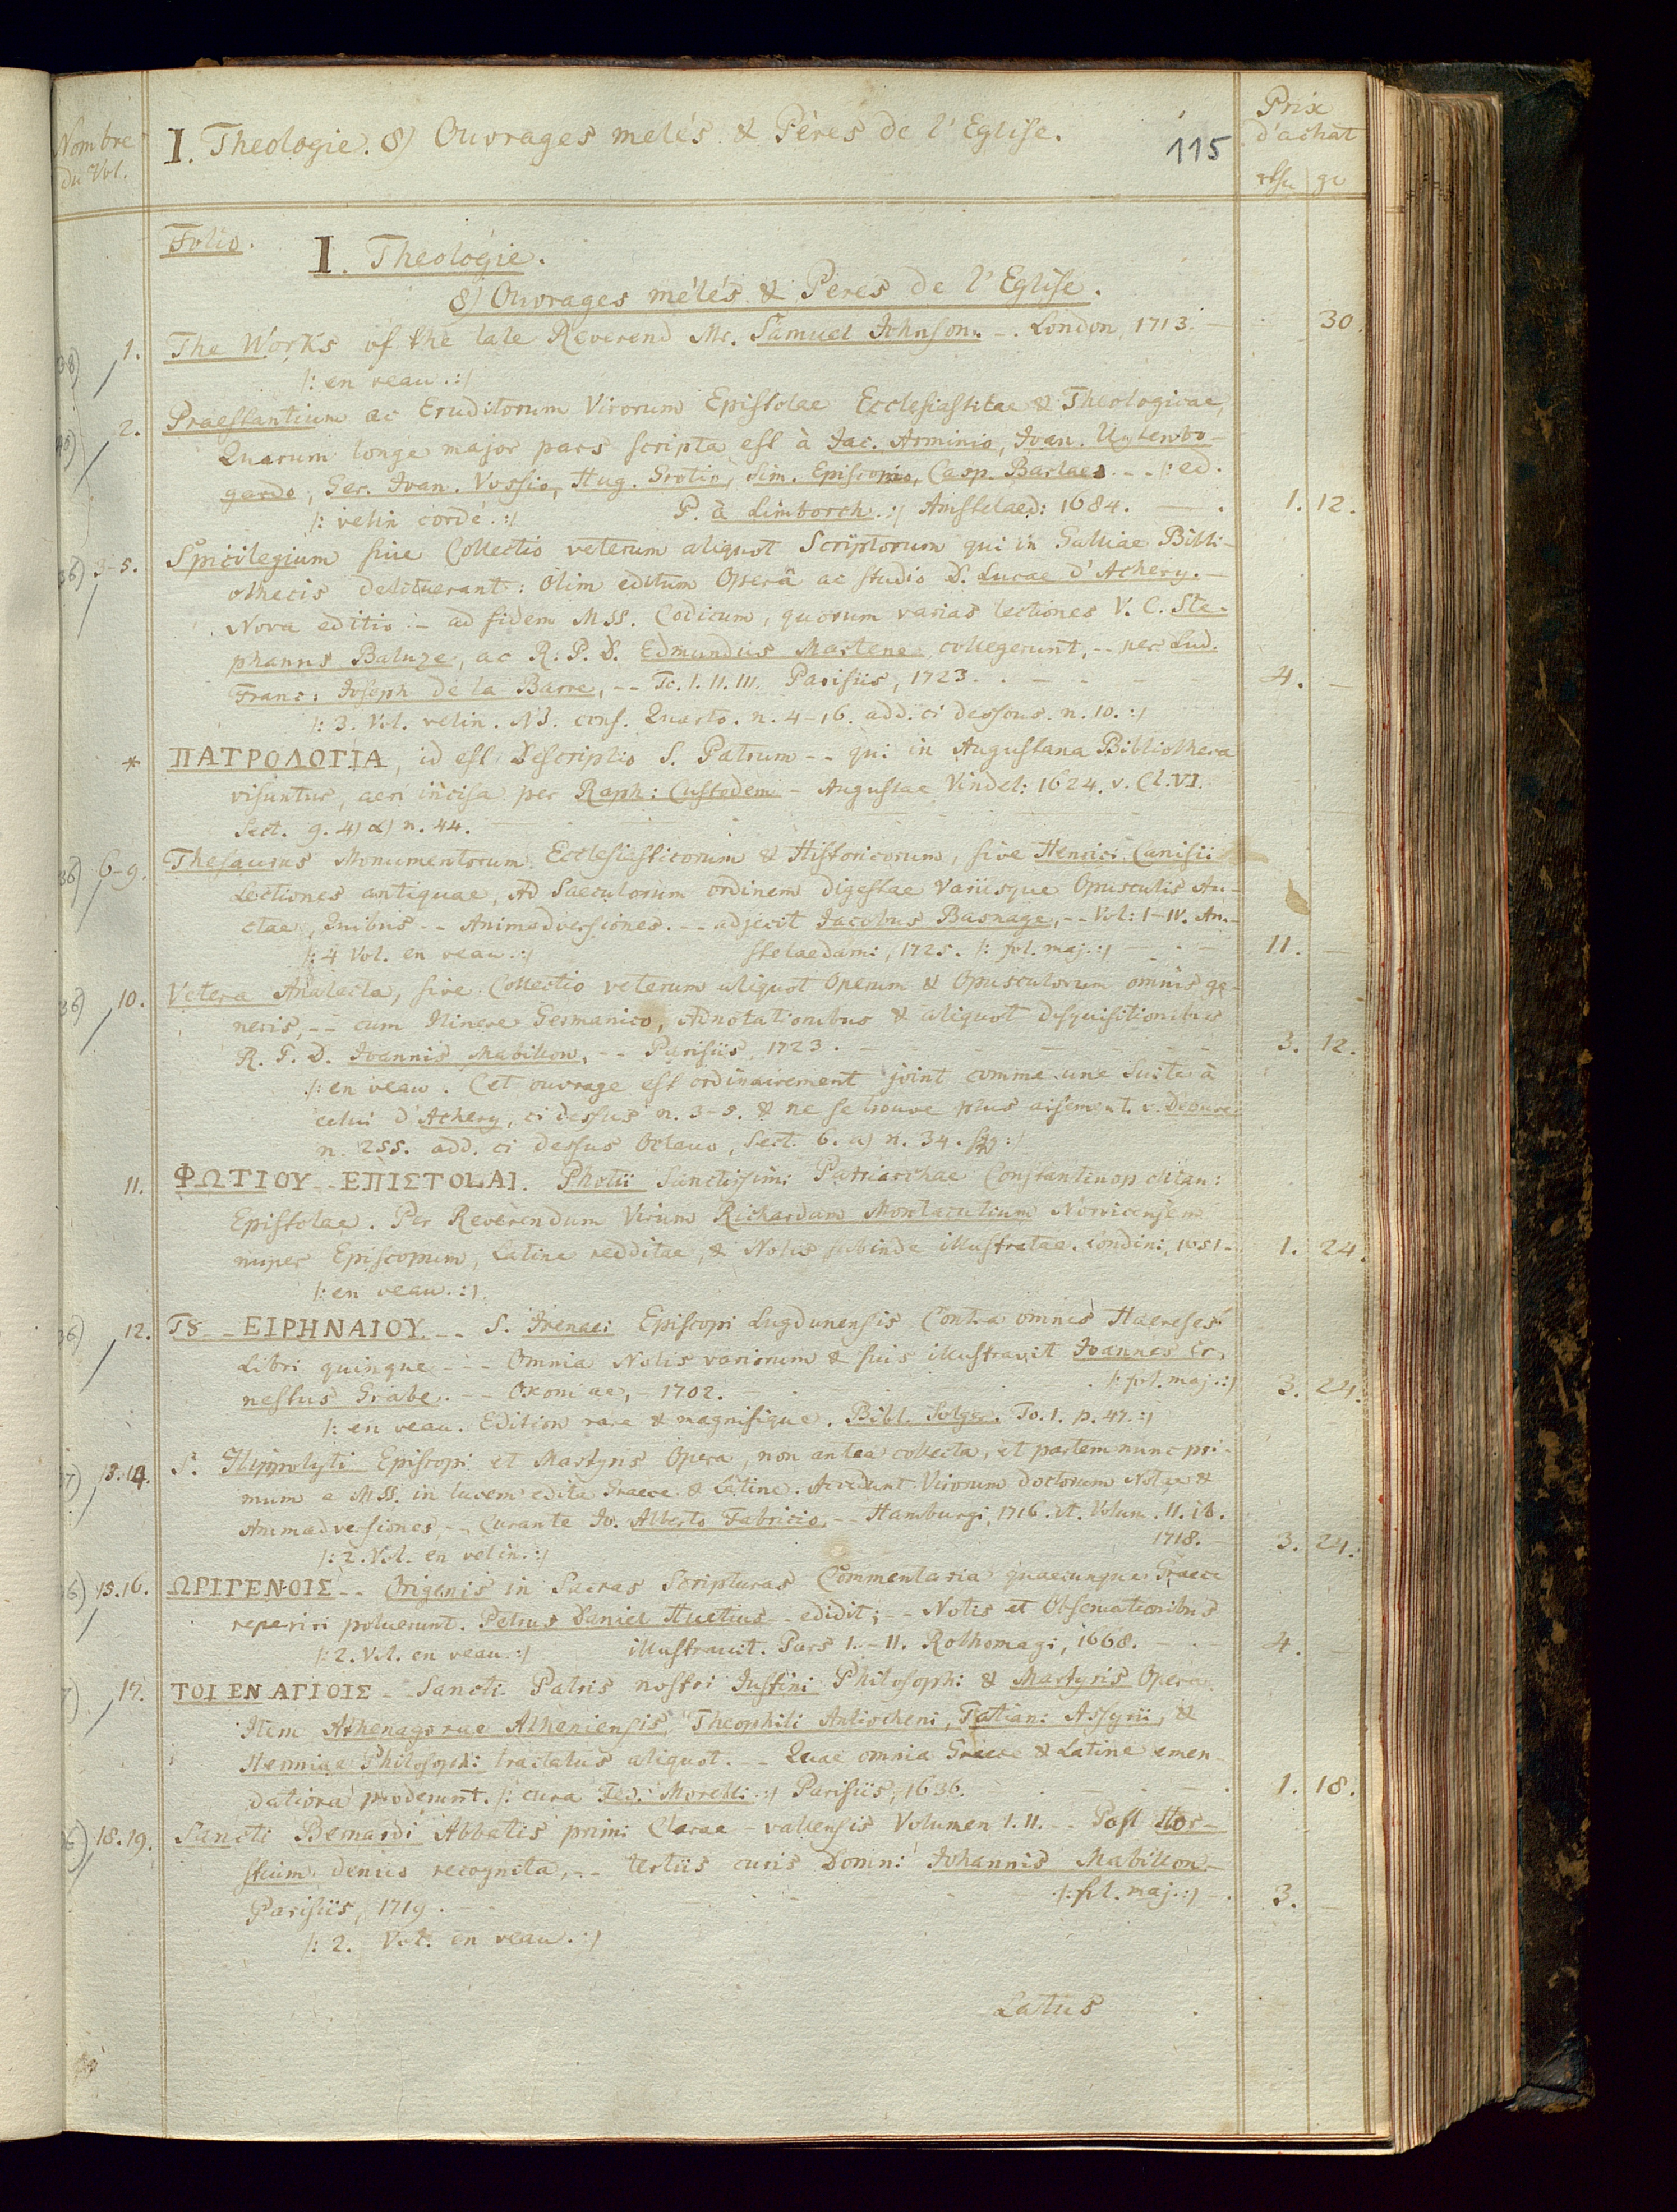 Nombre
du Vol.
I. Theologie. 8) Ouvrages melés & Pères de l'Eglise.
115
Prix
d'achat
gr
Folio.
I. Theologie.
8) Ouvrages mélés & Peres de l'Eglise.
1. The Works of the late Reverend Mr. Samuel Johnson. -. London, 1713. - 30.
/: en veau. :/
2. Praestantium ac Eruditorum Virorum Epistolae Ecclesiasticae & Theologicae,
Quarum longe major pars scripta est à Jac. Arminio, Joan. Uytenbo-
gardo, Ger. Joan. Vossio, Hug. Grotio, Sim. Episcopio, Casp. Barlaeo. - - /: ed.
/: velin cordé. :/ P. à Limborch. :/ Amstelaed: 1684. - . 1. 12.
36) 3-5. Spicilegium sive Collectio veterum aliquot Scriptorum qui in Galliae Bibli-
othecis delituerant: olim editum Operâ ac studio D. Lucae d'Achery. -
Nova editio - ad fidem MSS. Codicum, quorum varias lectiones V. C. Ste-
phanus Baluze, ac R. P. D. Edmundus Martene collegerunt, -- per Lud.
Franc: Joseph de la Barre, -- To. I. II. III. Parisiis, 1723. - 4. -
/: 3. Vol. velin. NB. conf. Quarto. n. 4-16. add. ci dessous. n. 10. :/
* ΠΑΤΡΟΛΟΓΙΑ, id est Descriptio S. Patrum -- qui in Augustana Bibliotheca
visuntur, aeri incisa per Raph: Custodem - Augustae Vindel: 1624. v. Cl. VI.
Sect. 9. 4) α) n. 44.
36) 6-9. Thesaurus Monumentorum Ecclesiasticorum & Historicorum, sive Henrici Canisii
Lectiones antiquae, Ad Saeculorum ordinem digestae Variisque Opusculis Au-
ctae, Quibus -- Animadversiones. -- adjecit Jacobus Basnage, -- Vol: I-IV. Am-
/: 4 Vol. en veau. :/ stelaedami, 1725. /: fol. maj. :/ - 11. -
36) 10. Vetera Analecta, sive Collectio veterum aliquot Operum & Opusculorum omnis ge-
neris, -- cum Itinere Germanico, Adnotationibus & aliquot disquisitionibus
R. P. D. Joannis Mabillon, -- Parisiis, 1723. - 3. 12.
/: en veau. Cet ouvrage est ordinairement joint comme une Suite à
celui d'Achery, ci dessus n. 3-5. & ne se trouve plus aisement. v. Debure
n. 255. add. ci dessus Octavo, Sect. 6. a) n. 34. :/
11. ΦΩΤΙΟΥ - ΕΠΙΣΤΟLΑΙ. Photii Sanctissimi Patriarchae Constantinopolitani
Epistolae. Per Reverendum Virum Richardum Montacutium Norvicensem
nuper Episcopum, Latine redditae, & Notis subinde illustratae. Londini, 1651. - 1. 24.
/: en veau. :/
36) 12. Tȣ - ΕΙΡΗΝΑΙΟΥ -- S. Irenaei Episcopi Lugdunensis Contra omnes Haereses
Libri quinque --- Omnia Notis variorum & suis illustravit Joannes Er-
nestus Grabe. -- Oxoniae, - 1702. /: fol. maj. :/ 3. 24.
/: en veau. Edition rare & magnifique. Bibl. Solger. To. 1. p. 47. :/
13.14. S. Hippolyti Episcopi et Martyris Opera, non antea collecta, et partem nunc pri-
mum e MSS. in lucem edita Graece & Latine. Accedunt Virorum doctorum Notae &
Animadversiones, -- Curante Jo. Alberto Fabricio. -- Hamburgi, 1716. et. Volum. II. ib.
/: 2. Vol. en velin. :/ 1718. - 3. 24.
15.16. ΩΡΙΓΕΝΟΙΣ -- Origenis in Sacras Scripturas Commentaria quaecunque Graece
reperiri potuerunt. Petrus Daniel Huetius -- edidit; -- Notis et Observationibus
/: 2. Vol. en veau. :/ illustravit. Pars I. - II. Rothomagi, 1668. - 4. -
17. ΤΟΙ ΕΝ ΑΓΙΟΙΣ - Sancti Patris nostri Justini Philosophi & Martyris Opera.
Item Athenagorae Atheniensis, Theophili Antiocheni, Tatiani Assyrii, &
Hermiae Philosophi tractatus aliquot. -- Quae omnia Graece & Latine emen-
datiora prodeunt. /: cura Fed: Morelli :/ Parisiis, 1636. - 1. 18.
18.19. Sancti Bernardi Abbatis primi Clarae-vallensis Volumen I. II. -- Post Hor-
stium denuo recognita, -- tertiis curis Domni Johannis Mabillon -
Parisiis, 1719. - /: fol. maj. :/ - 3. -
/: 2. Vol. en veau. :/
Latus